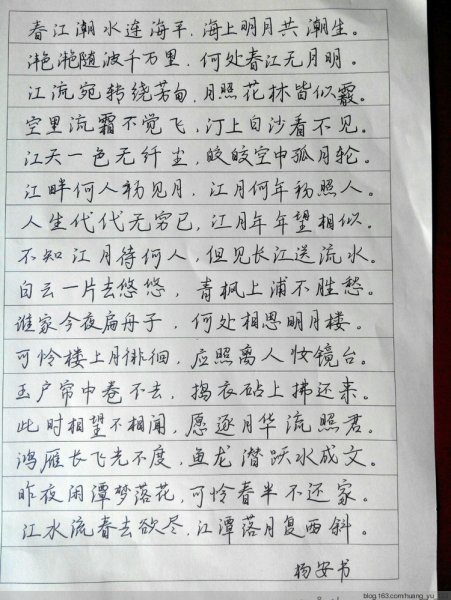 春江潮水连海平，海上明月共潮生。
滟滟随波千万里，何处春江无月明。
江流宛转绕芳甸，月照花林皆似霰。
空里流霜不觉飞，汀上白沙看不见。
江天一色无纤尘，皎皎空中孤月轮。
江畔何人初见月，江月何年初照人。
人生代代无穷已，江月年年望相似。
不知江月待何人，但见长江送流水。
白云一片去悠悠，青枫上浦不胜愁。
谁家今夜扁舟子，何处相思明月楼。
可怜楼上月徘徊，应照离人妆镜台。
玉户帘中卷不去，捣衣砧上拂还来。
此时相望不相闻，愿逐月华流照君。
鸿雁长飞光不度，鱼龙潜跃水成文。
昨夜闲潭梦落花，可怜春半不还家。
江水流春去欲尽，江潭落月复西斜。
杨安书
blog.163.com/huang_yu_